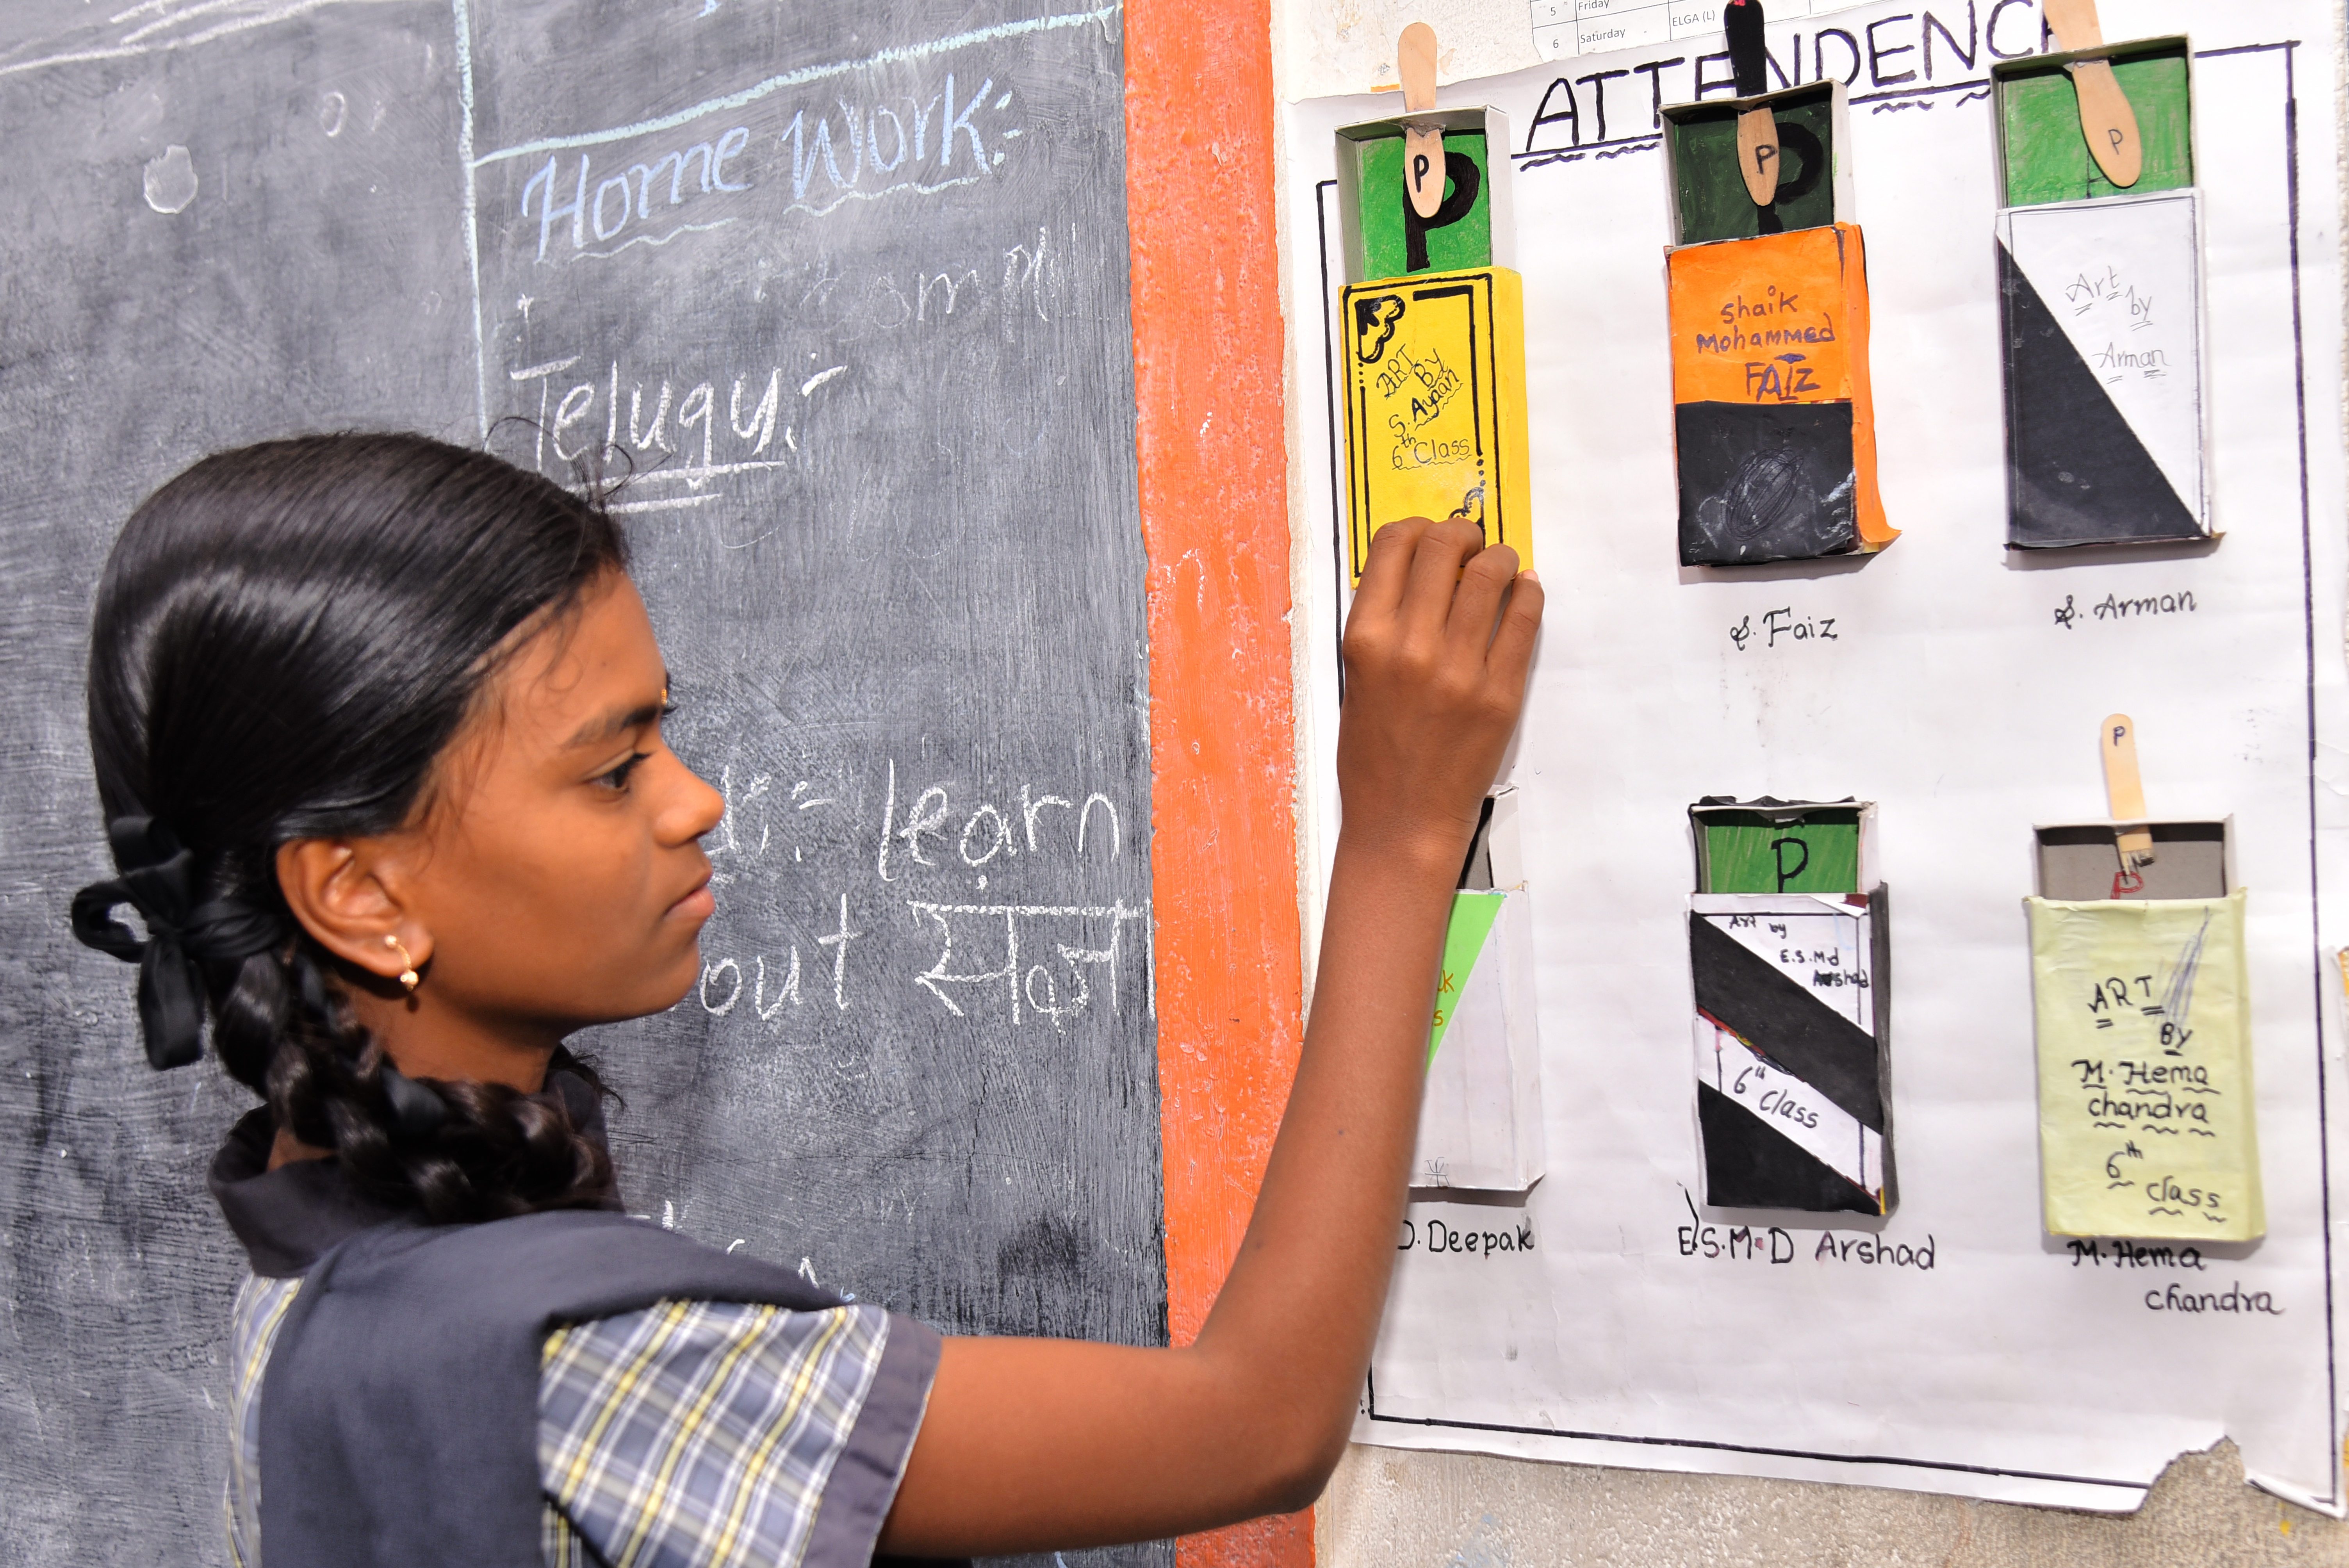 Home Work:-
Telugu:-
learn
out
5 Friday
6 Saturday
ELGA (L)
ATTENDENC
P
P
ART
By
S. Ayaan
6th Class
P
Shaik
Mohammed
FAIZ
S. Faiz
P
Art
by
Arman
S. Arman
D. Deepak
P
Art by
E.S.Md
Arshad
6th Class
E.S.M.D Arshad
P
P
ART
BY
M. Hema
chandra
6th
class
M. Hema
chandra